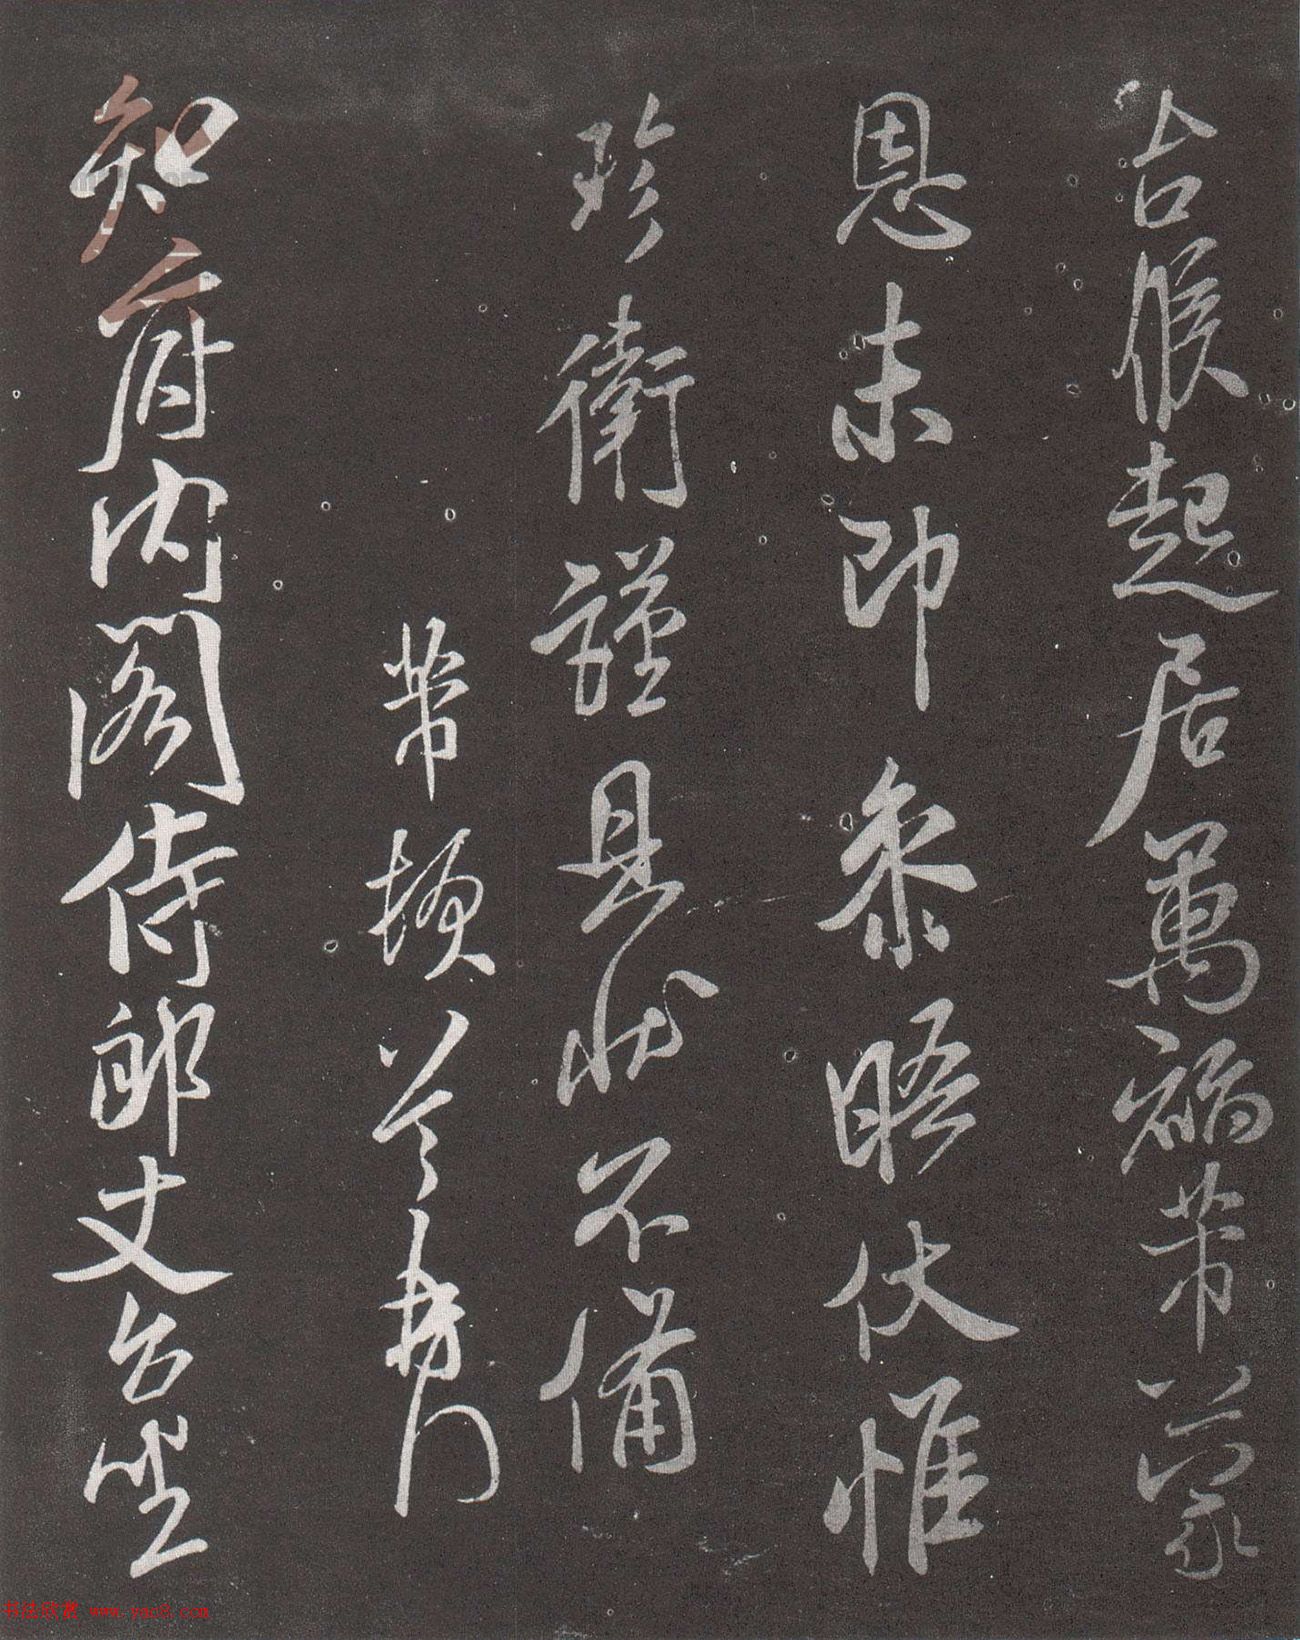 台候起居萬福芾蒙
恩未即參晤伏惟
珍衛謹具狀不備
芾頓首
知府內閣侍郎丈台坐
书法欣赏 www.yac8.com